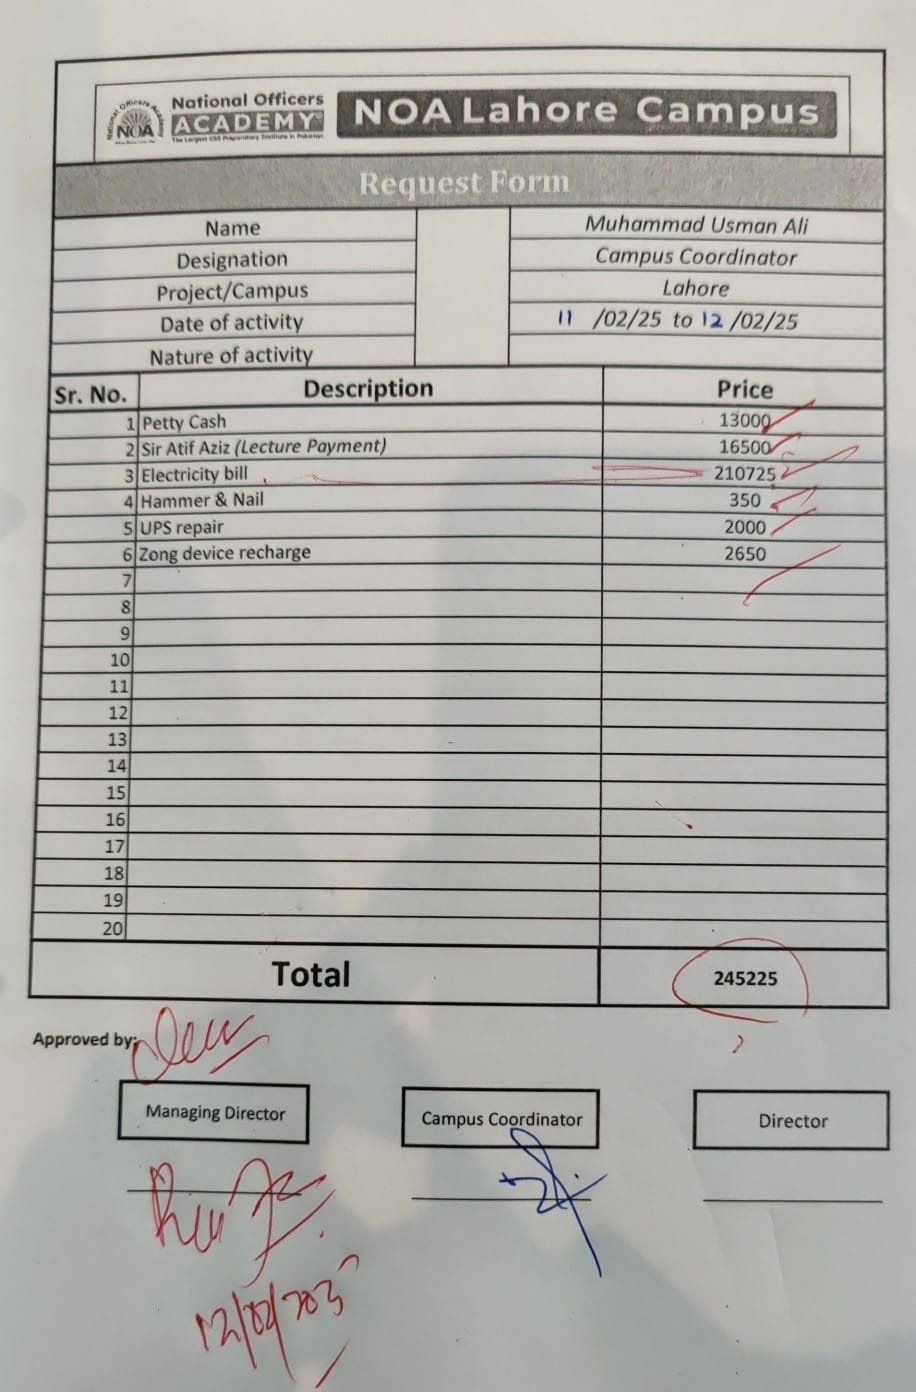 National Officers Academy
NOA
National Officers
ACADEMY
The Largest CSS Preparatory Institute in Pakistan
NOA Lahore Campus
Request Form
Name Muhammad Usman Ali
Designation Campus Coordinator
Project/Campus Lahore
Date of activity 11 /02/25 to 12 /02/25
Nature of activity
Sr. No. Description Price
1 Petty Cash 13000
2 Sir Atif Aziz (Lecture Payment) 16500
3 Electricity bill 210725
4 Hammer & Nail 350
5 UPS repair 2000
6 Zong device recharge 2650
7
8
9
10
11
12
13
14
15
16
17
18
19
20
Total 245225
Approved by:
Managing Director Campus Coordinator Director